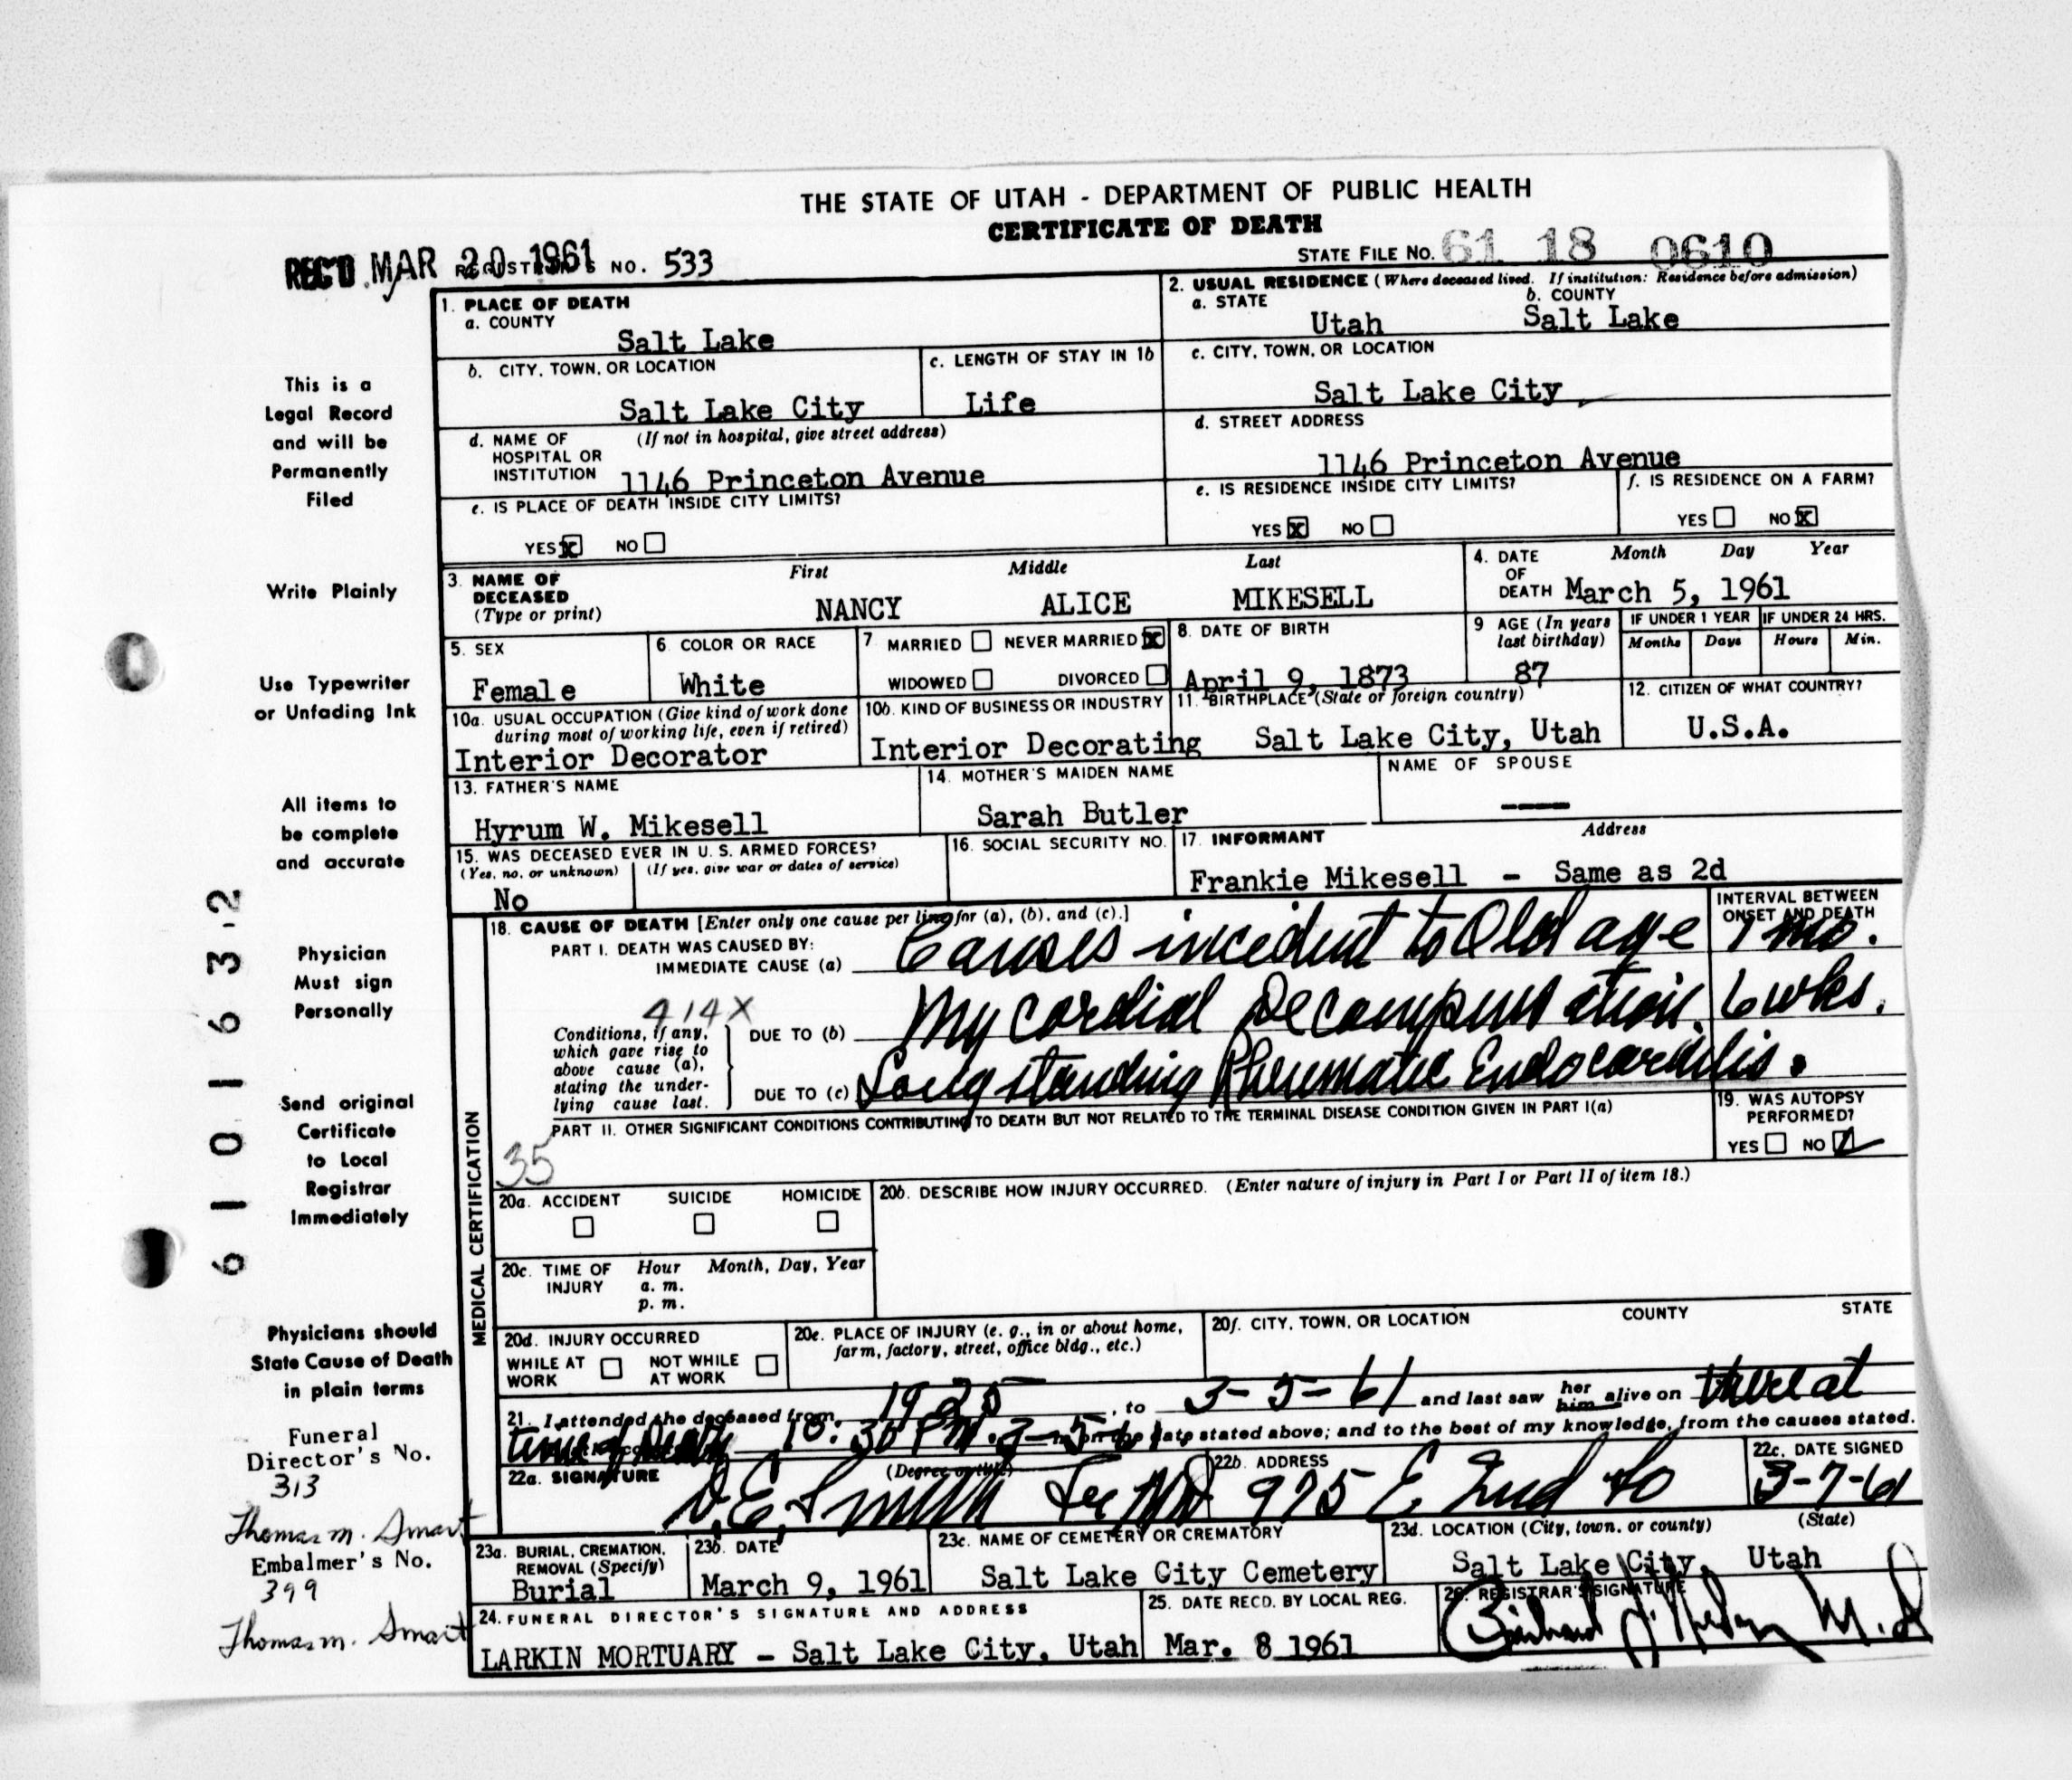 THE STATE OF UTAH - DEPARTMENT OF PUBLIC HEALTH
CERTIFICATE OF DEATH
REC'D MAR 20 1961 REGISTRAR'S NO. 533
STATE FILE NO. 61 18 0610
1. PLACE OF DEATH
a. COUNTY
Salt Lake
2. USUAL RESIDENCE (Where deceased lived. If institution: Residence before admission)
a. STATE
Utah
b. COUNTY
Salt Lake
b. CITY, TOWN, OR LOCATION
Salt Lake City
c. LENGTH OF STAY IN 1b
Life
c. CITY, TOWN, OR LOCATION
Salt Lake City
d. NAME OF HOSPITAL OR INSTITUTION
(If not in hospital, give street address)
1146 Princeton Avenue
d. STREET ADDRESS
1146 Princeton Avenue
e. IS PLACE OF DEATH INSIDE CITY LIMITS?
YES x NO
e. IS RESIDENCE INSIDE CITY LIMITS?
YES x NO
f. IS RESIDENCE ON A FARM?
YES NO x
3. NAME OF DECEASED
(Type or print)
First Middle Last
NANCY ALICE MIKESELL
4. DATE OF DEATH
Month Day Year
March 5, 1961
5. SEX
Female
6. COLOR OR RACE
White
7. MARRIED NEVER MARRIED x
WIDOWED DIVORCED
8. DATE OF BIRTH
April 9, 1873
9 AGE (In years last birthday)
87
IF UNDER 1 YEAR
Months Days
IF UNDER 24 HRS.
Hours Min.
10a. USUAL OCCUPATION (Give kind of work done during most of working life, even if retired)
Interior Decorator
10b. KIND OF BUSINESS OR INDUSTRY
Interior Decorating
11. BIRTHPLACE (State or foreign country)
Salt Lake City, Utah
12. CITIZEN OF WHAT COUNTRY?
U.S.A.
13. FATHER'S NAME
Hyrum W. Mikesell
14. MOTHER'S MAIDEN NAME
Sarah Butler
NAME OF SPOUSE
15. WAS DECEASED EVER IN U. S. ARMED FORCES?
(Yes, no, or unknown) (If yes, give war or dates of service)
No
16. SOCIAL SECURITY NO.
17. INFORMANT Address
Frankie Mikesell - Same as 2d
MEDICAL CERTIFICATION
18. CAUSE OF DEATH [Enter only one cause per line for (a), (b), and (c).]
INTERVAL BETWEEN ONSET AND DEATH
PART I. DEATH WAS CAUSED BY:
IMMEDIATE CAUSE (a) Causes incident to Old age mo.
414X
Conditions, if any, which gave rise to above cause (a), stating the underlying cause last.
DUE TO (b) Mycordial Decompensation. 6 wks.
DUE TO (c) Long standing Rheumatic Endocarditis.
PART II. OTHER SIGNIFICANT CONDITIONS CONTRIBUTING TO DEATH BUT NOT RELATED TO THE TERMINAL DISEASE CONDITION GIVEN IN PART I(a)
35
19. WAS AUTOPSY PERFORMED?
YES NO
20a. ACCIDENT SUICIDE HOMICIDE
20b. DESCRIBE HOW INJURY OCCURRED. (Enter nature of injury in Part I or Part II of item 18.)
20c. TIME OF INJURY
Hour Month, Day, Year
a. m.
p. m.
20d. INJURY OCCURRED
WHILE AT WORK NOT WHILE AT WORK
20e. PLACE OF INJURY (e. g., in or about home, farm, factory, street, office bldg., etc.)
20f. CITY, TOWN, OR LOCATION COUNTY STATE
21. I attended the deceased from 1925, to 3-5-61 and last saw her him alive on there at
time of Death 10:30 PM. 3-5-61 date stated above; and to the best of my knowledge, from the causes stated.
22a. SIGNATURE
D. E. Smith MD
22b. ADDRESS
975 E 2nd So
22c. DATE SIGNED
3-7-61
23a. BURIAL, CREMATION, REMOVAL (Specify)
Burial
23b. DATE
March 9, 1961
23c. NAME OF CEMETERY OR CREMATORY
Salt Lake City Cemetery
23d. LOCATION (City, town, or county) (State)
Salt Lake City, Utah
24. FUNERAL DIRECTOR'S SIGNATURE AND ADDRESS
LARKIN MORTUARY - Salt Lake City, Utah
25. DATE RECD. BY LOCAL REG.
Mar. 8 1961
26. REGISTRAR'S SIGNATURE
This is a
Legal Record
and will be
Permanently
Filed
Write Plainly
Use Typewriter
or Unfading Ink
All items to
be complete
and accurate
Physician
Must sign
Personally
Send original
Certificate
to Local
Registrar
Immediately
Physicians should
State Cause of Death
in plain terms
Funeral
Director's No.
313
Thomas M. Smart
Embalmer's No.
399
Thomas M. Smart
6 1 0 1 6 3 2